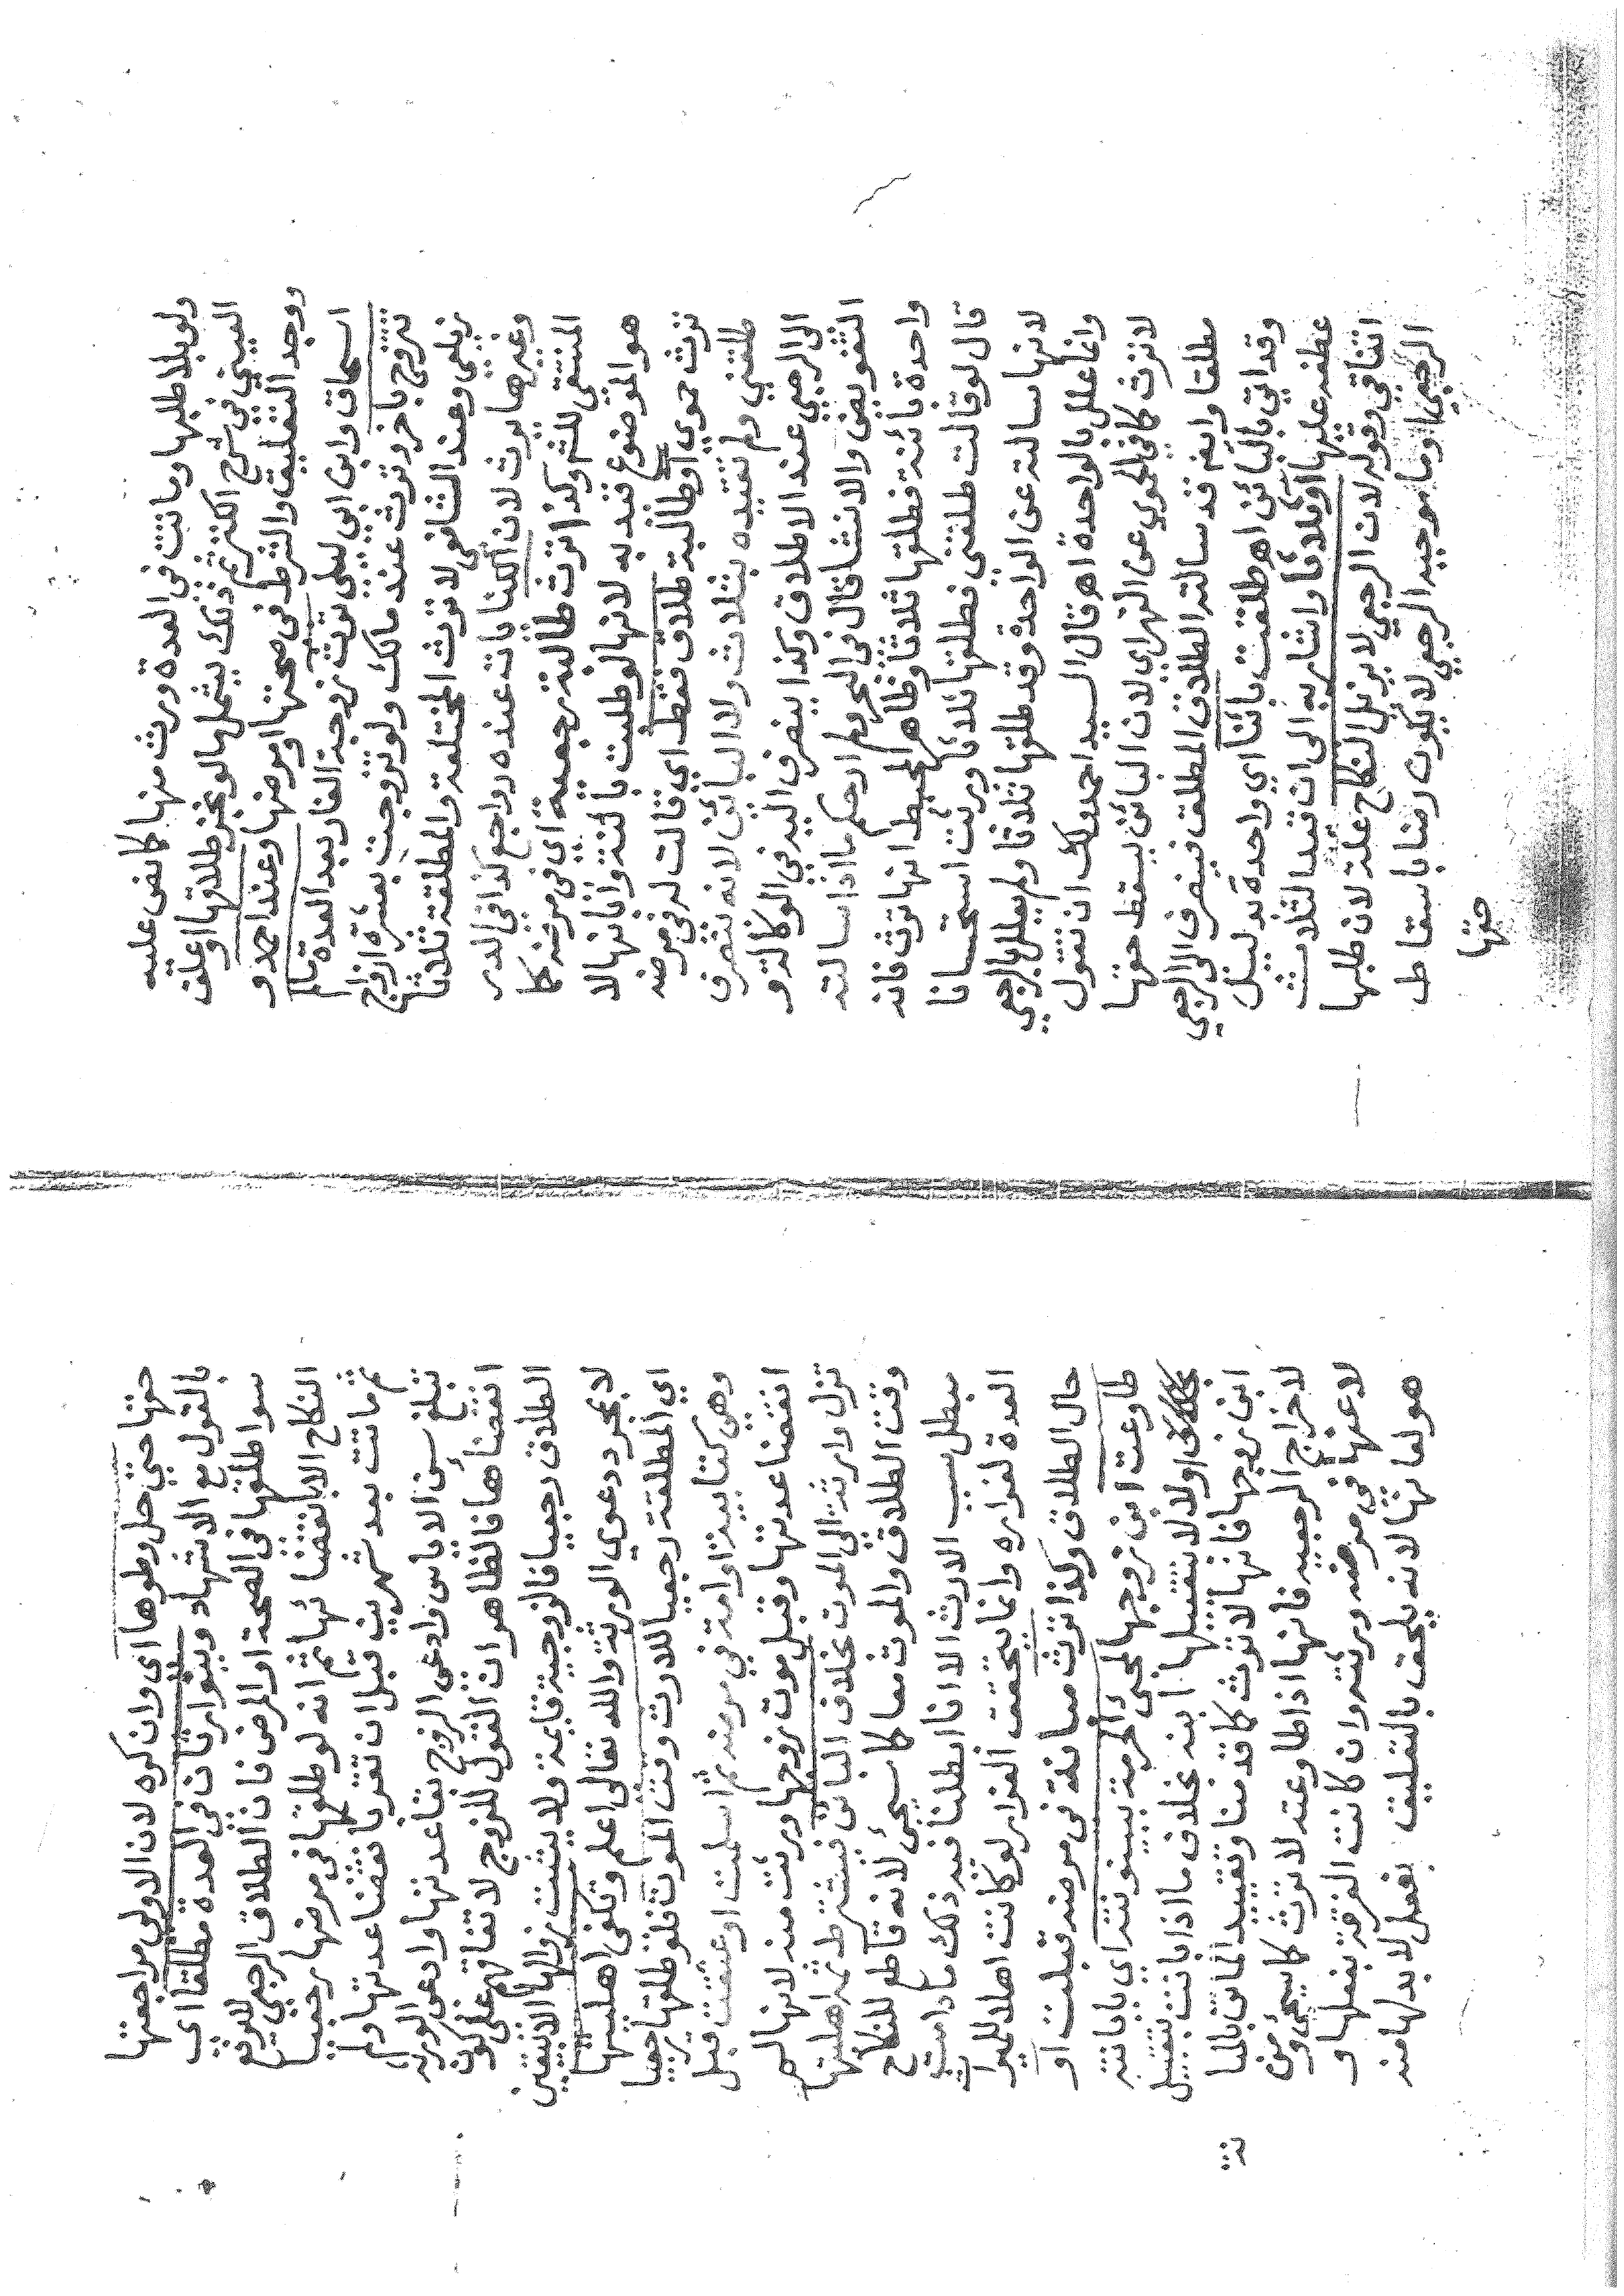 ولو بلا طلبها وماتت في العدة ورث منها كا نفى عليه
العيني في شرح الكنز ثم ذلك يشمل ما لو نجز طلاقها او علق
ووجد التعليق والشرط في صحتها او مرضها وعند احمد و
اسحاق وابن ابي ليلى ترث زوجة الفار بعد العدة مالم
تتزوج باخر وترث عند مالك ولو تزوجت بعشرة ازواج
زيلعي وعند الشافعي لا ترث المختلعة والمطلقة ثلاثا
وغيرها يرث لان الكنايات عنده رواجع كذا في الدر
المنتقى للثم وكذا ترث طالبة رجعية اي في مرضه كما
هو الموضوع قيد به لانها لو طلبت بائنة وابانها لا
ترث حموي او طالبة طلاق فقط اي قالت له في مرضه
طلقني ولم تقيده بثلاث ولا البائن لانه ينصرف
الى الرجعي عند الاطلاق وكذا ينصرف اليه في الوكالة و
التفويض والانشا قال في البحر ولم ار حكم ما اذا سالته
واحدة بائنة فطلقها ثلاثا وظاهر المحيط انها ترث فانه
قال لو قالت طلقني فطلقها ثلاثا ورثت استحسانا
لانها سالته عن الواحدة وقد طلقها ثلاثا ولم يعلل بالرجعي
وانما علل بالواحدة اهـ قال السيد احمد ولك ان تقول
لا ترث كما في الحموي عن النهر اي لان البائن يسقط حقها
مطلقا وايضا قد سالته الطلاق المطلق فينصرف الى الرجعي
وقد اتي بالبائن اهـ طلقت بائنا اي واحدة بدليل
عطفه عليها او ثلاثا واشار به الى ان قصد الثلاث
اتفاقي وقوله لان الرجعي لا يزيل النكاح علة لان طلبها
الرجعي اوما هو حيد الرجعي لا يكون رضا باسقاط
حقها
حقها حتي حل وطوها اي وان كره لان الاولي مراجعتها
بالقول مع الاشهاد ويتوارثان في العدة مطلقا اي
سوا طلقها في الصحة او المرض فان الطلاق الرجعي لا يرفع
النكاح الا بانقضائها ثم انه لو طلقها في مرضها رجعيا
ثم ماتت بعد شهرين قبل ان تقر بانقضا عدتها ولم
تبلغ سن الاياس وادعى الزوج بقا عدتها وادعى الورثة
انقضاها فالظاهر ان القول للزوج لاتفاقهم على كون
الطلاق رجعيا فالزوجية قايمة ولا يثبت زوالها الا بيقين
لا بمجرد دعوي الورثة والله تعالى اعلم وتكفي اهليتها
اي المطلقة رجعيا للارث وقت الموت فلو طلقها رجعيا
وهي كتابية او امة في مرضه ثم اسلمت او عتقت قبل
انقضا عدتها وقبل موت زوجها ورثت منه لانها لم
تزل وارثة الي الموت بخلاف البائن فيشترط اهليتها
وقت الطلاق والموت معا كما سيجئ لانه قاطع للنكاح
يبطل سبب الارث الا انا ابطلنا قيد ذلك ما دامت
العدة لفراره وانما يتحقق الفرار لو كانت اهلا للميراث
حال الطلاق وكذا ترث مبانة في مرضه قبلت او
طاوعت ابن زوجها لمجي الحرمة ببينونته اي بابانته
ابنه بخلاف ما اذا بانت بتقبيل
ابن زوجها فانها لا ترث كما قدمنا وتقييد المائن بالمنا
لاخراج الرجعية فانها اذا طاوعته لا ترث كما سيجئ ومن
لاعنها في مرضه ورثته وان كانت الفرقة بفعلها و
هو لعانها لانه يلحق بالتعليق بفعل لا بد لها منه